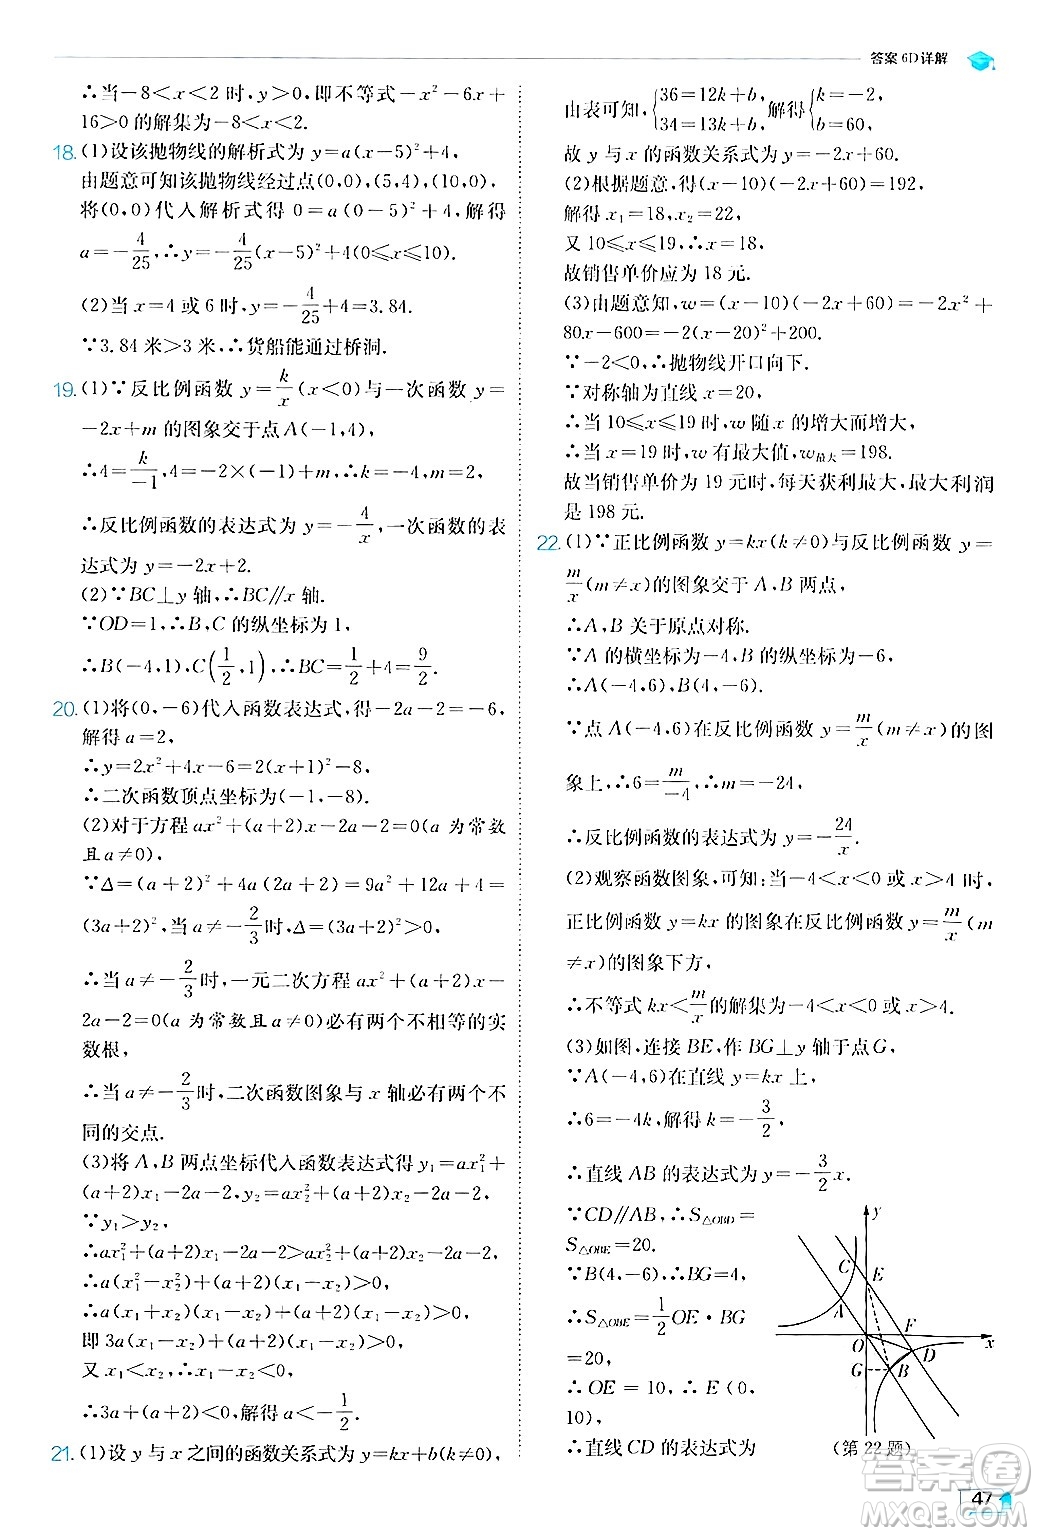 答案 6D 详解
∴当−8<x<2 时,y>0,即不等式−x²−6x+
16>0 的解集为−8<x<2.
18. (1)设该抛物线的解析式为 y=a(x−5)²+4,
由题意可知该抛物线经过点(0,0),(5,4),(10,0),
将(0,0)代入解析式得 0=a(0−5)²+4,解得
a=−4/25,∴y=−4/25(x−5)²+4(0≤x≤10).
(2)当 x=4 或 6 时,y=−4/25+4=3.84.
∵3.84 米>3 米,∴货船能通过桥洞.
19. (1)∵反比例函数 y=k/x(x<0)与一次函数 y=
−2x+m 的图象交于点 A(−1,4),
∴4=k/−1,4=−2×(−1)+m,∴k=−4,m=2,
∴反比例函数的表达式为 y=−4/x,一次函数的表
达式为 y=−2x+2.
(2)∵BC⊥y 轴,∴BC∥x 轴.
∵OD=1,∴B,C 的纵坐标为 1,
∴B(−4,1),C(1/2,1),∴BC=1/2+4=9/2.
20. (1)将(0,−6)代入函数表达式,得−2a−2=−6,
解得 a=2,
∴y=2x²+4x−6=2(x+1)²−8,
∴二次函数顶点坐标为(−1,−8).
(2)对于方程 ax²+(a+2)x−2a−2=0(a 为常数
且 a≠0),
∵Δ=(a+2)²+4a(2a+2)=9a²+12a+4=
(3a+2)²,当 a≠−2/3时,Δ=(3a+2)²>0,
∴当 a≠−2/3时,一元二次方程 ax²+(a+2)x−
2a−2=0(a 为常数且 a≠0)必有两个不相等的实
数根,
∴当 a≠−2/3时,二次函数图象与 x 轴必有两个不
同的交点.
(3)将 A,B 两点坐标代入函数表达式得 y₁=ax₁²+
(a+2)x₁−2a−2,y₂=ax₂²+(a+2)x₂−2a−2,
∵y₁>y₂,
∴ax₁²+(a+2)x₁−2a−2>ax₂²+(a+2)x₂−2a−2,
∴a(x₁²−x₂²)+(a+2)(x₁−x₂)>0,
∴a(x₁+x₂)(x₁−x₂)+(a+2)(x₁−x₂)>0,
即 3a(x₁−x₂)+(a+2)(x₁−x₂)>0,
又 x₁<x₂,∴x₁−x₂<0,
∴3a+(a+2)<0,解得 a<−1/2.
21. (1)设 y 与 x 之间的函数关系式为 y=kx+b(k≠0),
由表可知,{36=12k+b, 34=13k+b, 解得{k=−2, b=60,
故 y 与 x 的函数关系式为 y=−2x+60.
(2)根据题意,得(x−10)(−2x+60)=192,
解得 x₁=18,x₂=22,
又 10≤x≤19,∴x=18,
故销售单价应为 18 元.
(3)由题意知,w=(x−10)(−2x+60)=−2x²+
80x−600=−2(x−20)²+200.
∵−2<0,∴抛物线开口向下.
∵对称轴为直线 x=20,
∴当 10≤x≤19 时,w 随 x 的增大而增大,
∴当 x=19 时,w 有最大值,w最大=198.
故当销售单价为 19 元时,每天获利最大,最大利润
是 198 元.
22. (1)∵正比例函数 y=kx(k≠0)与反比例函数 y=
m/x(m≠x)的图象交于 A,B 两点,
∴A,B 关于原点对称.
∵A 的横坐标为−4,B 的纵坐标为−6,
∴A(−4,6),B(4,−6).
∵点 A(−4,6)在反比例函数 y=m/x(m≠x)的图
象上,∴6=m/−4,∴m=−24,
∴反比例函数的表达式为 y=−24/x.
(2)观察函数图象,可知:当−4<x<0 或 x>4 时,
正比例函数 y=kx 的图象在反比例函数 y=m/x(m
≠x)的图象下方,
∴不等式 kx<m/x的解集为−4<x<0 或 x>4.
(3)如图,连接 BE,作 BG⊥y 轴于点 G,
∵A(−4,6)在直线 y=kx 上,
∴6=−4k,解得 k=−3/2,
∴直线 AB 的表达式为 y=−3/2x.
∵CD∥AB,∴S△OBD=
S△OBE=20.
∵B(4,−6),∴BG=4,
∴S△OBE=1/2OE·BG
=20,
∴OE=10,∴E(0,
10),
∴直线 CD 的表达式为
y
C
E
A
F
O
D
x
G
B
(第 22 题)
答案圈
MXQE.COM
47